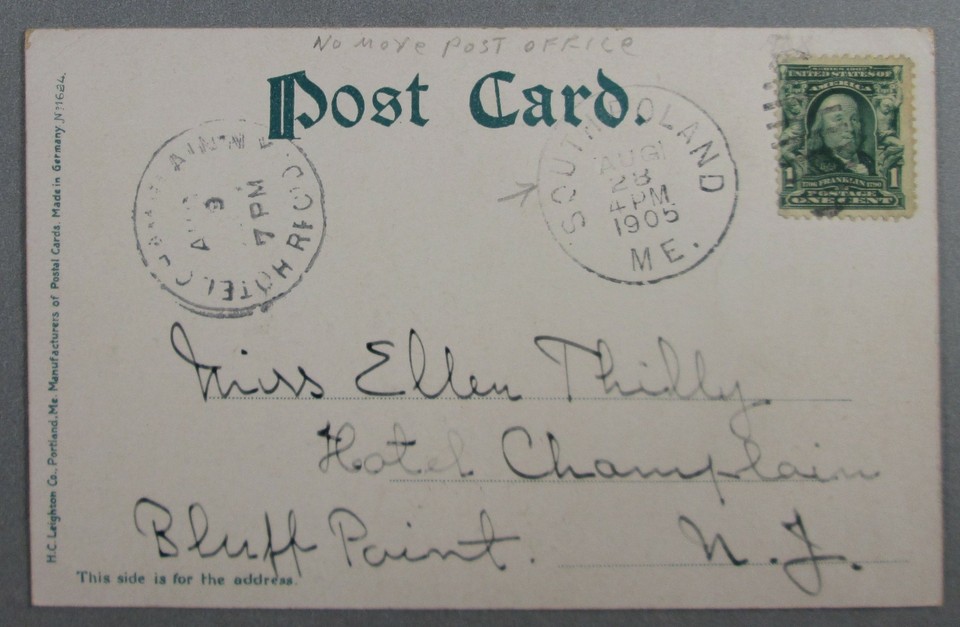 No more post office
Post Card.
UNITED STATES OF
AMERICA
1 FRANKLIN 1
POSTAGE
ONE CENT
AUG
28
4 PM
1905
ME.
HOTEL
9
7 PM
Miss Ellen Thilly
Hotel Champlain
Bluff Point. N.J.
This side is for the address.
H.C. Leighton Co., Portland, Me. Manufacturers of Postal Cards. Made in Germany No 1624.